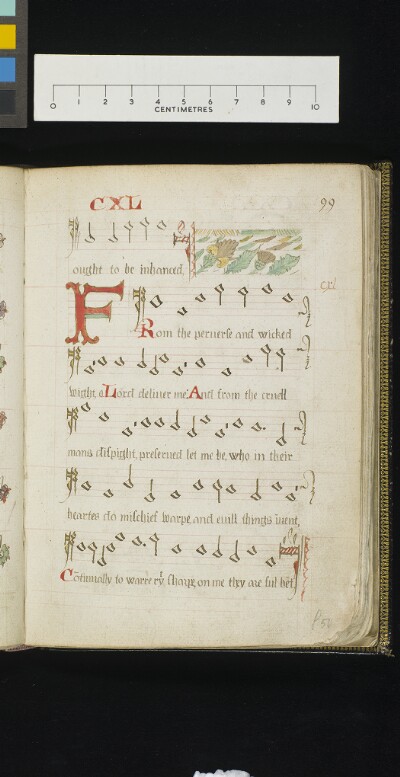 0 1 2 3 4 5 6 7 8 9 10
CENTIMETRES
CXL
99
ought to be inhanced,
cxl
FRom the perverse and wicked
wight, o Lord deliver me: And from the cruell
mans dispight, preserved let me be, who in their
heartes do mischief warpe, and evill things invent,
Cōtinually to warre yͬ sharpe, on me they are ful bēt